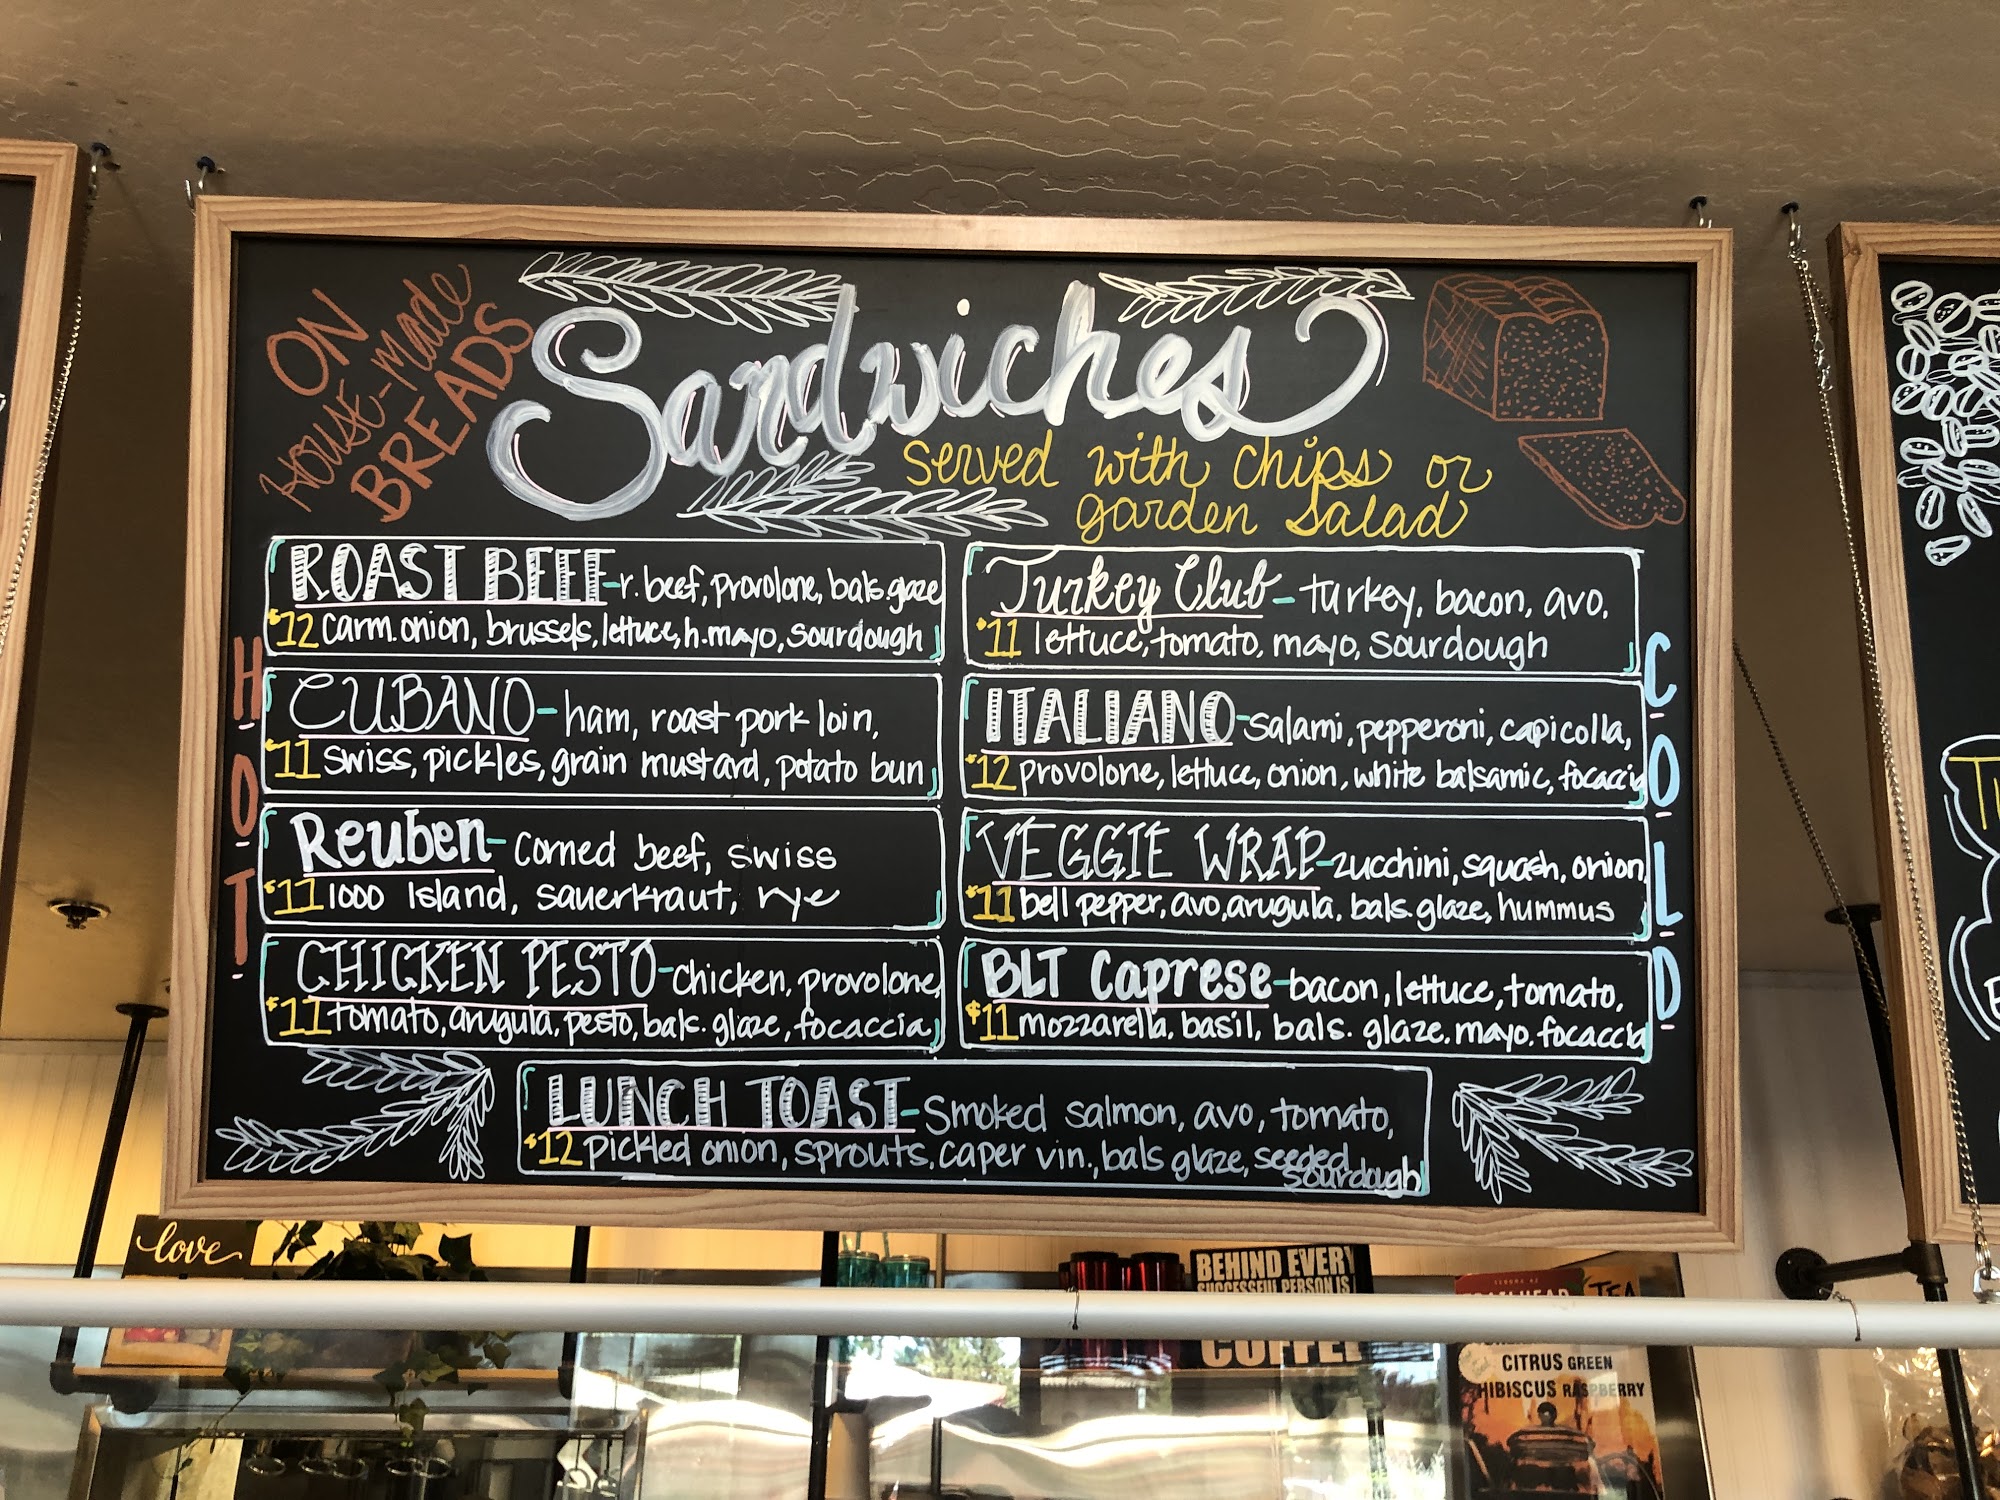 ON
HOUSE-Made
BREADS
Sandwiches
served with chips or
garden salad
HOT
ROAST BEEF-r. beef, provolone, bals. glaze
$12 carm. onion, brussels, lettuce, h. mayo, sourdough
CUBANO-ham, roast pork loin,
$11 swiss, pickles, grain mustard, potato bun
Reuben-corned beef, swiss
$11 1000 island, sauerkraut, rye
CHICKEN PESTO-chicken, provolone,
$11 tomato, arugula, pesto, bals. glaze, focaccia
COLD
Turkey Club-turkey, bacon, avo,
$11 lettuce, tomato, mayo, sourdough
ITALIANO-salami, pepperoni, capicolla,
$12 provolone, lettuce, onion, white balsamic, focaccia
VEGGIE WRAP-zucchini, squash, onion,
$11 bell pepper, avo, arugula, bals. glaze, hummus
BLT Caprese-bacon, lettuce, tomato,
$11 mozzarella, basil, bals. glaze, mayo, focaccia
LUNCH TOAST-smoked salmon, avo, tomato,
$12 pickled onion, sprouts, caper vin., bals glaze, seeded
sourdough
love
BEHIND EVERY
SUCCESSFUL PERSON IS
COFFEE
TEA
CITRUS GREEN
HIBISCUS RASPBERRY